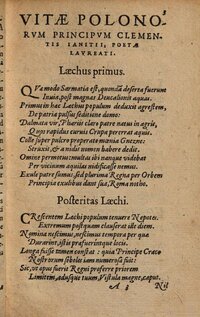 VITÆ POLONO-
RVM PRINCIPVM CLEMEN-
TIS IANITII, POETÆ
LAVREATI.
Læchus primus.
QVa modo Sarmatia est, quondã deserta fuerunt
Inuia, post magnas Deucalionis aquas.
Primus in hæc Læchus populum deduxit agrestem,
De patria pulsus seditione domo:
Dalmata vir, Pharijs claro patre natus in agris,
Quos rapidus cursu Crupa pererrat aqua.
Colle super pulcro properatæ mœnia Gnezne:
Struxit, & a nidis numen habere dedit.
Omine permotus multas ibi nanque videbat
Per vicinam aquilas nidificasse nemus.
Exule patre sumus, sed plurima Regna per Orbem
Principia exulibus dant sua, Roma notho.
Posteritas Læchi.
CRescentem Læchi populum tenuere Nepotes.
Extremum postquam clauserat ille diem.
Nomina nescimus, nescimus tempora per quæ
Durarint, isti præfuerintque locis.
Longa fuisse tamen constat: quia Principe Craco
Nostrorum soboles iam numerosa fuit:
Sic, vt opus fuerit Regni proferre priorem
Limitem, adusque tuum, Vistula magne, caput.
A 3